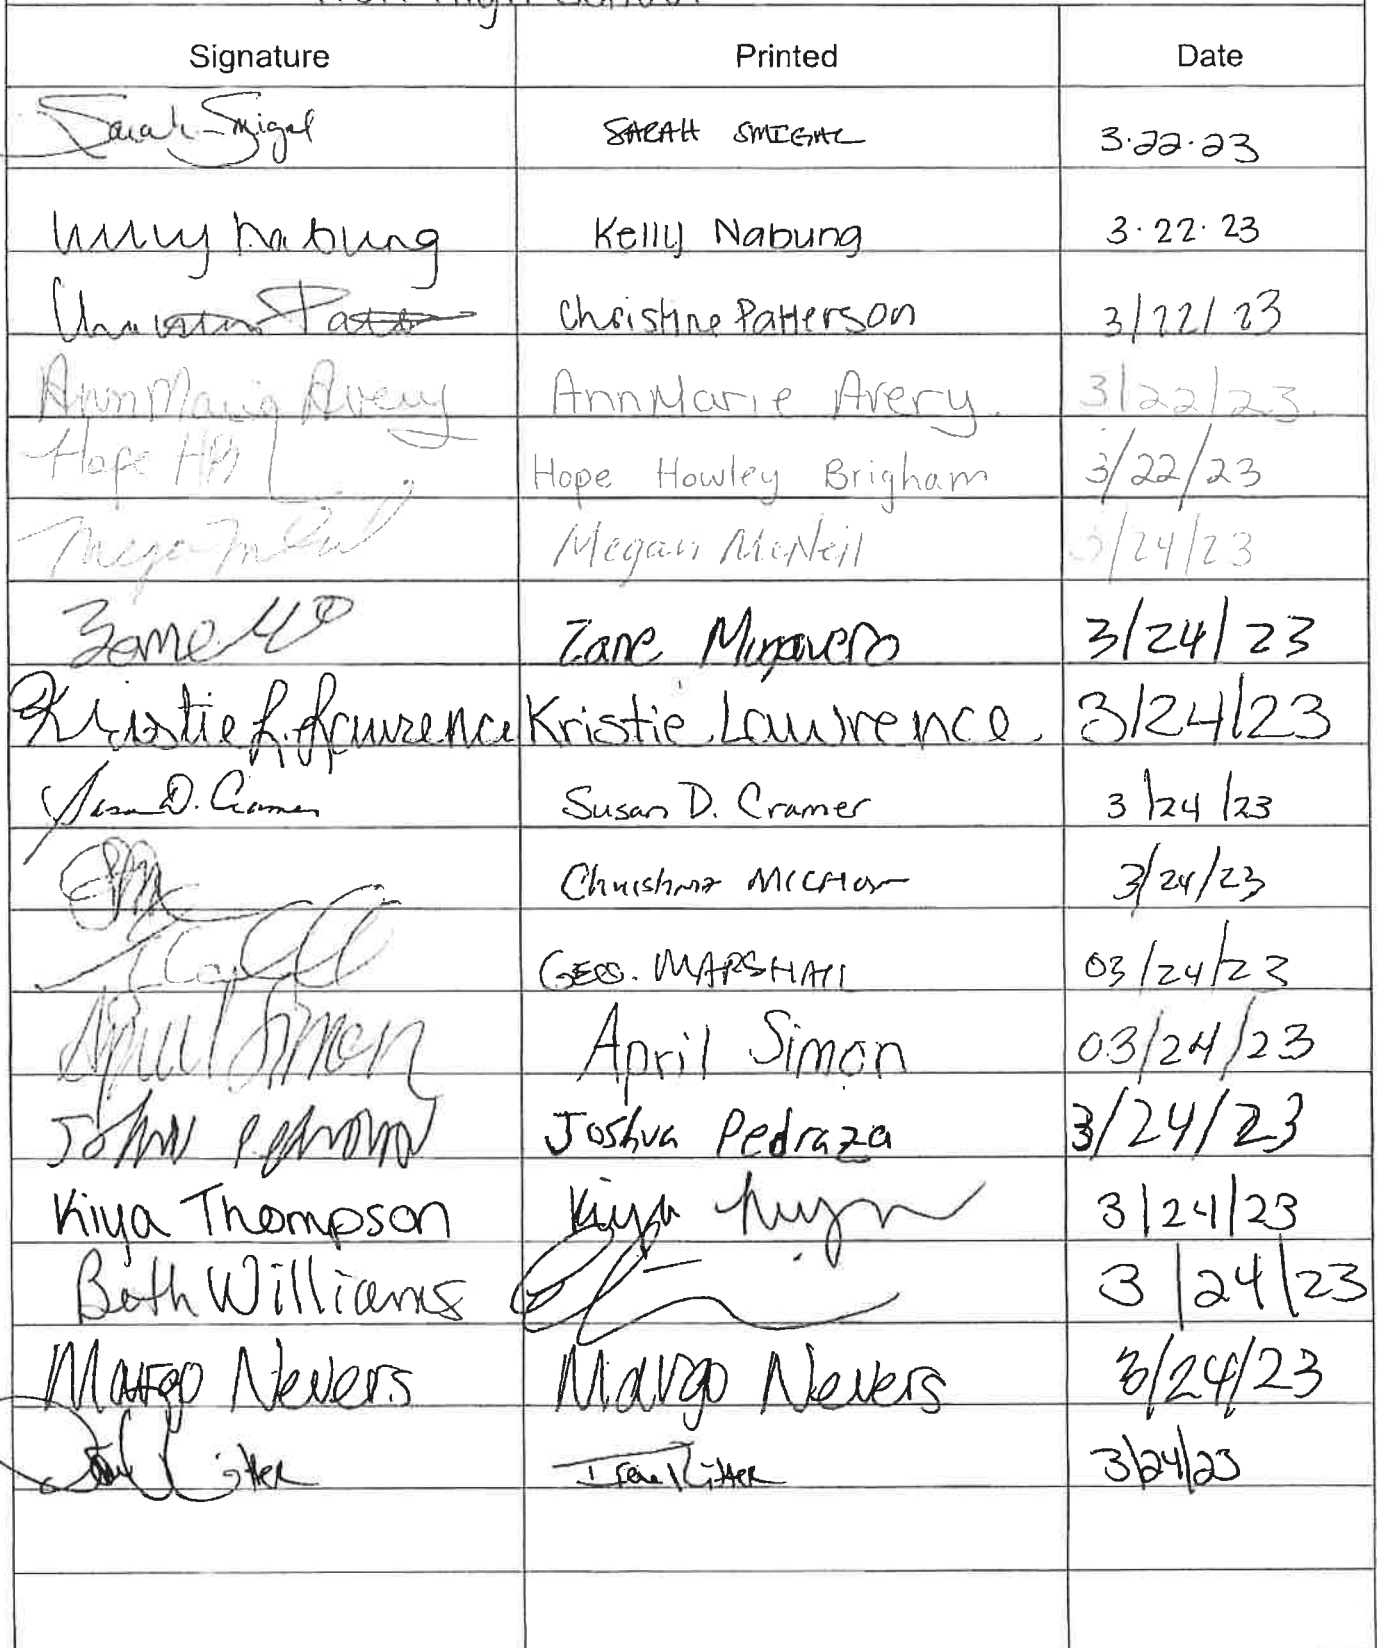 High School
Signature Printed Date
Sarah Smigal SARAH SMIGAL 3.22.23
Kelly Nabung Kelly Nabung 3.22.23
Christine Patt Christine Patterson 3/22/23
AnnMarie Avery AnnMarie Avery. 3/22/23.
Hope HB Hope Howley Brigham 3/22/23
Megan McNeil Megan McNeil 3/24/23
Zane Zane 3/24/23
Kristie L. Lawrence Kristie Lawrence 3/24/23
Susan D. Cramer Susan D. Cramer 3/24/23
3/24/23
GEO. MARSHALL 03/24/23
April Simon April Simon 03/24/23
Joshua Pedraza 3/24/23
Kiya Thompson Kiya 3/24/23
Beth Williams 3/24/23
Margo Nevers Margo Nevers 3/24/23
Ritter Ritter 3/24/23